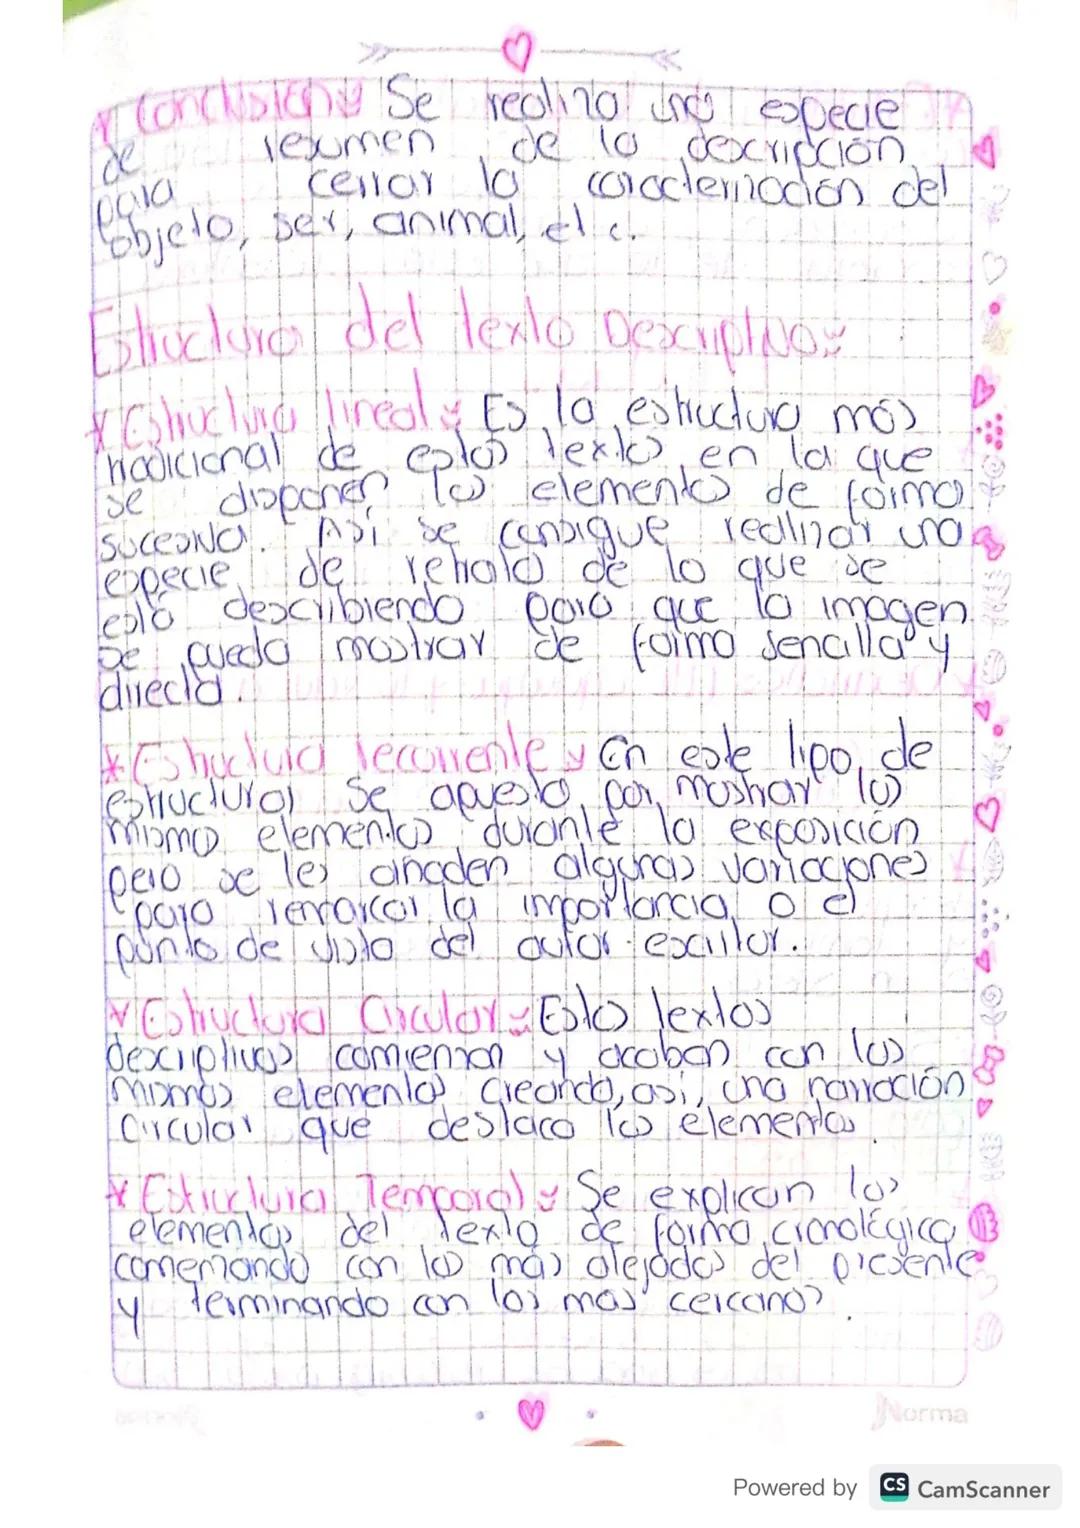 * Conclusión: Se realiza una especie
de resumen de la descripción
para cerrar la caracterización del
objeto, ser, animal, etc.
Estructura del texto Descriptivo:
* Estructura lineal: Es la estructura más
tradicional de estos textos en la que
se disponen los elementos de forma
sucesiva. Así se consigue realizar una
especie de retrato de lo que se
está describiendo para que la imagen
se pueda mostrar de forma sencilla y
directa.
* Estructura recurrente: En este tipo de
estructuras se apuesta por mostrar los
mismos elementos durante la exposición
pero se les añaden algunas variaciones
para remarcar la importancia o el
punto de vista del autor-escritor.
* Estructura Circular: Estos textos
descriptivos comienzan y acaban con los
mismos elementos creando, así, una narración
circular que destaca los elementos.
* Estructura Temporal: Se explican los
elementos del texto de forma cronológica
comenzando con los más alejados del presente
y terminando con los más cercanos.
Norma
Powered by CS CamScanner